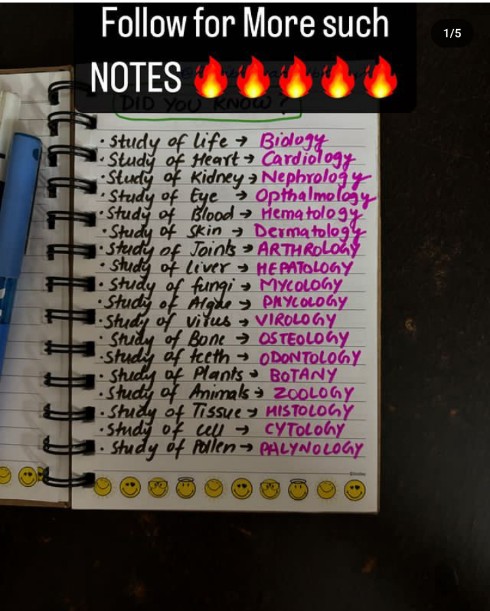 Follow for More such
1/5
NOTES 🔥🔥🔥🔥🔥
DID YOU KNOW?
• Study of life → Biology
• Study of Heart → Cardiology
• Study of Kidney → Nephrology
• Study of Eye → Opthalmology
• Study of Blood → Hematology
• Study of Skin → Dermatology
• Study of Joints → ARTHROLOGY
• Study of Liver → HEPATOLOGY
• Study of fungi → MYCOLOGY
• Study of Algae → PHYCOLOGY
• Study of virus → VIROLOGY
• Study of Bone → OSTEOLOGY
• Study of teeth → ODONTOLOGY
• Study of Plants → BOTANY
• Study of Animals → ZOOLOGY
• Study of Tissue → HISTOLOGY
• Study of cell → CYTOLOGY
• Study of Pollen → PALYNOLOGY